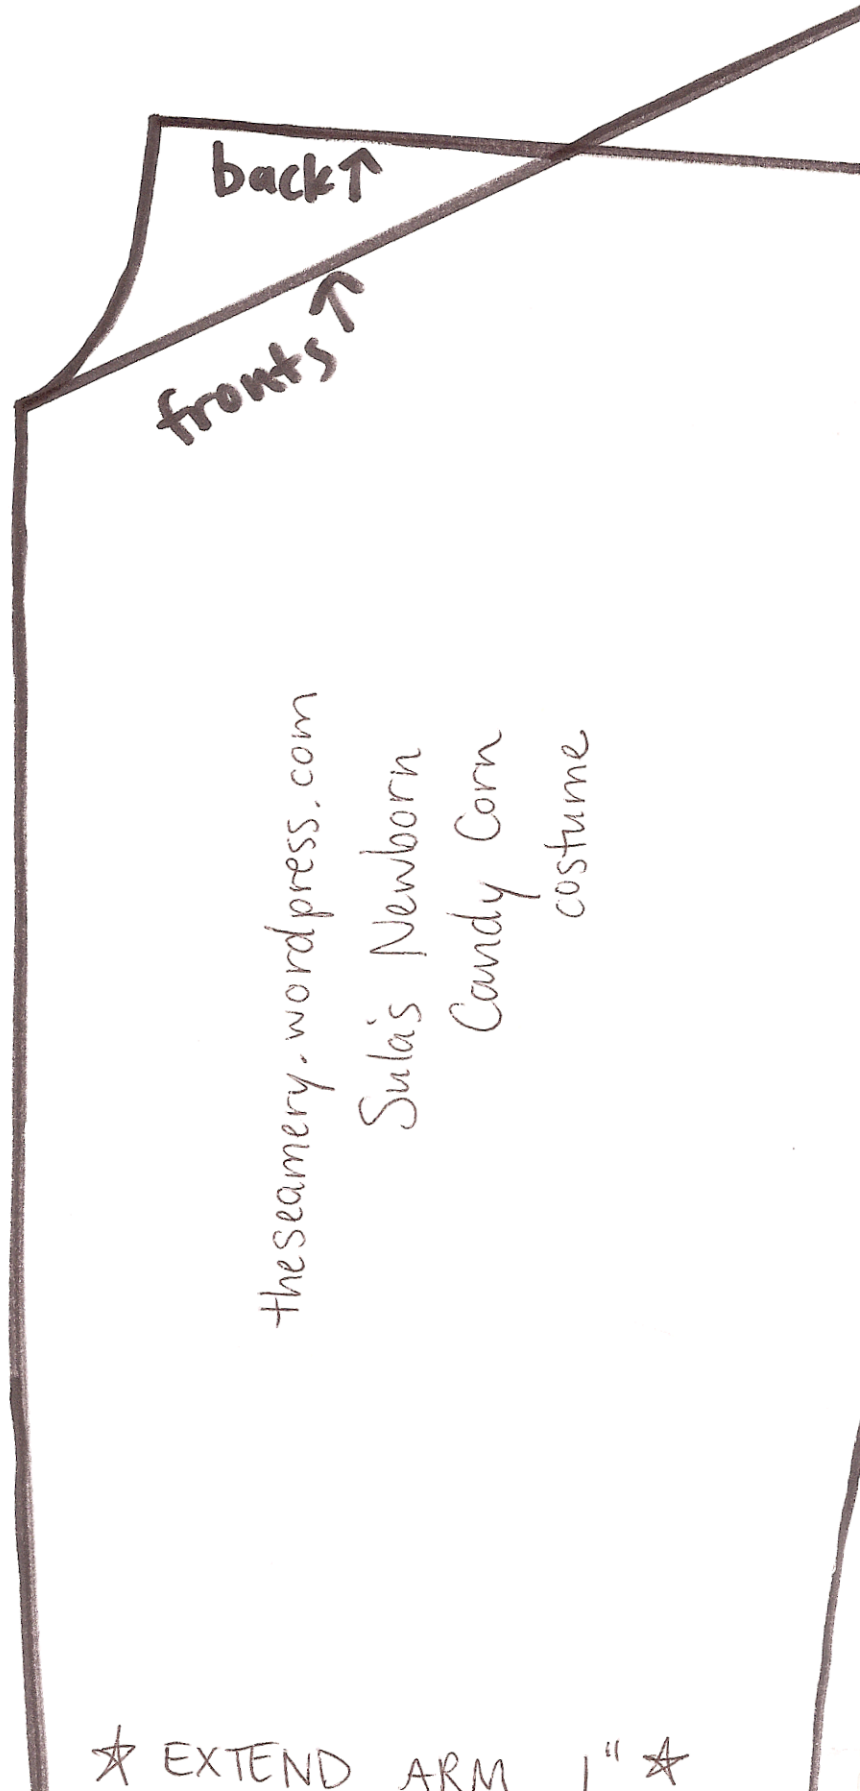 back↑
fronts↑
theseamery.wordpress.com
Sula's Newborn
Candy Corn
costume
☆ EXTEND ARM 1" ☆